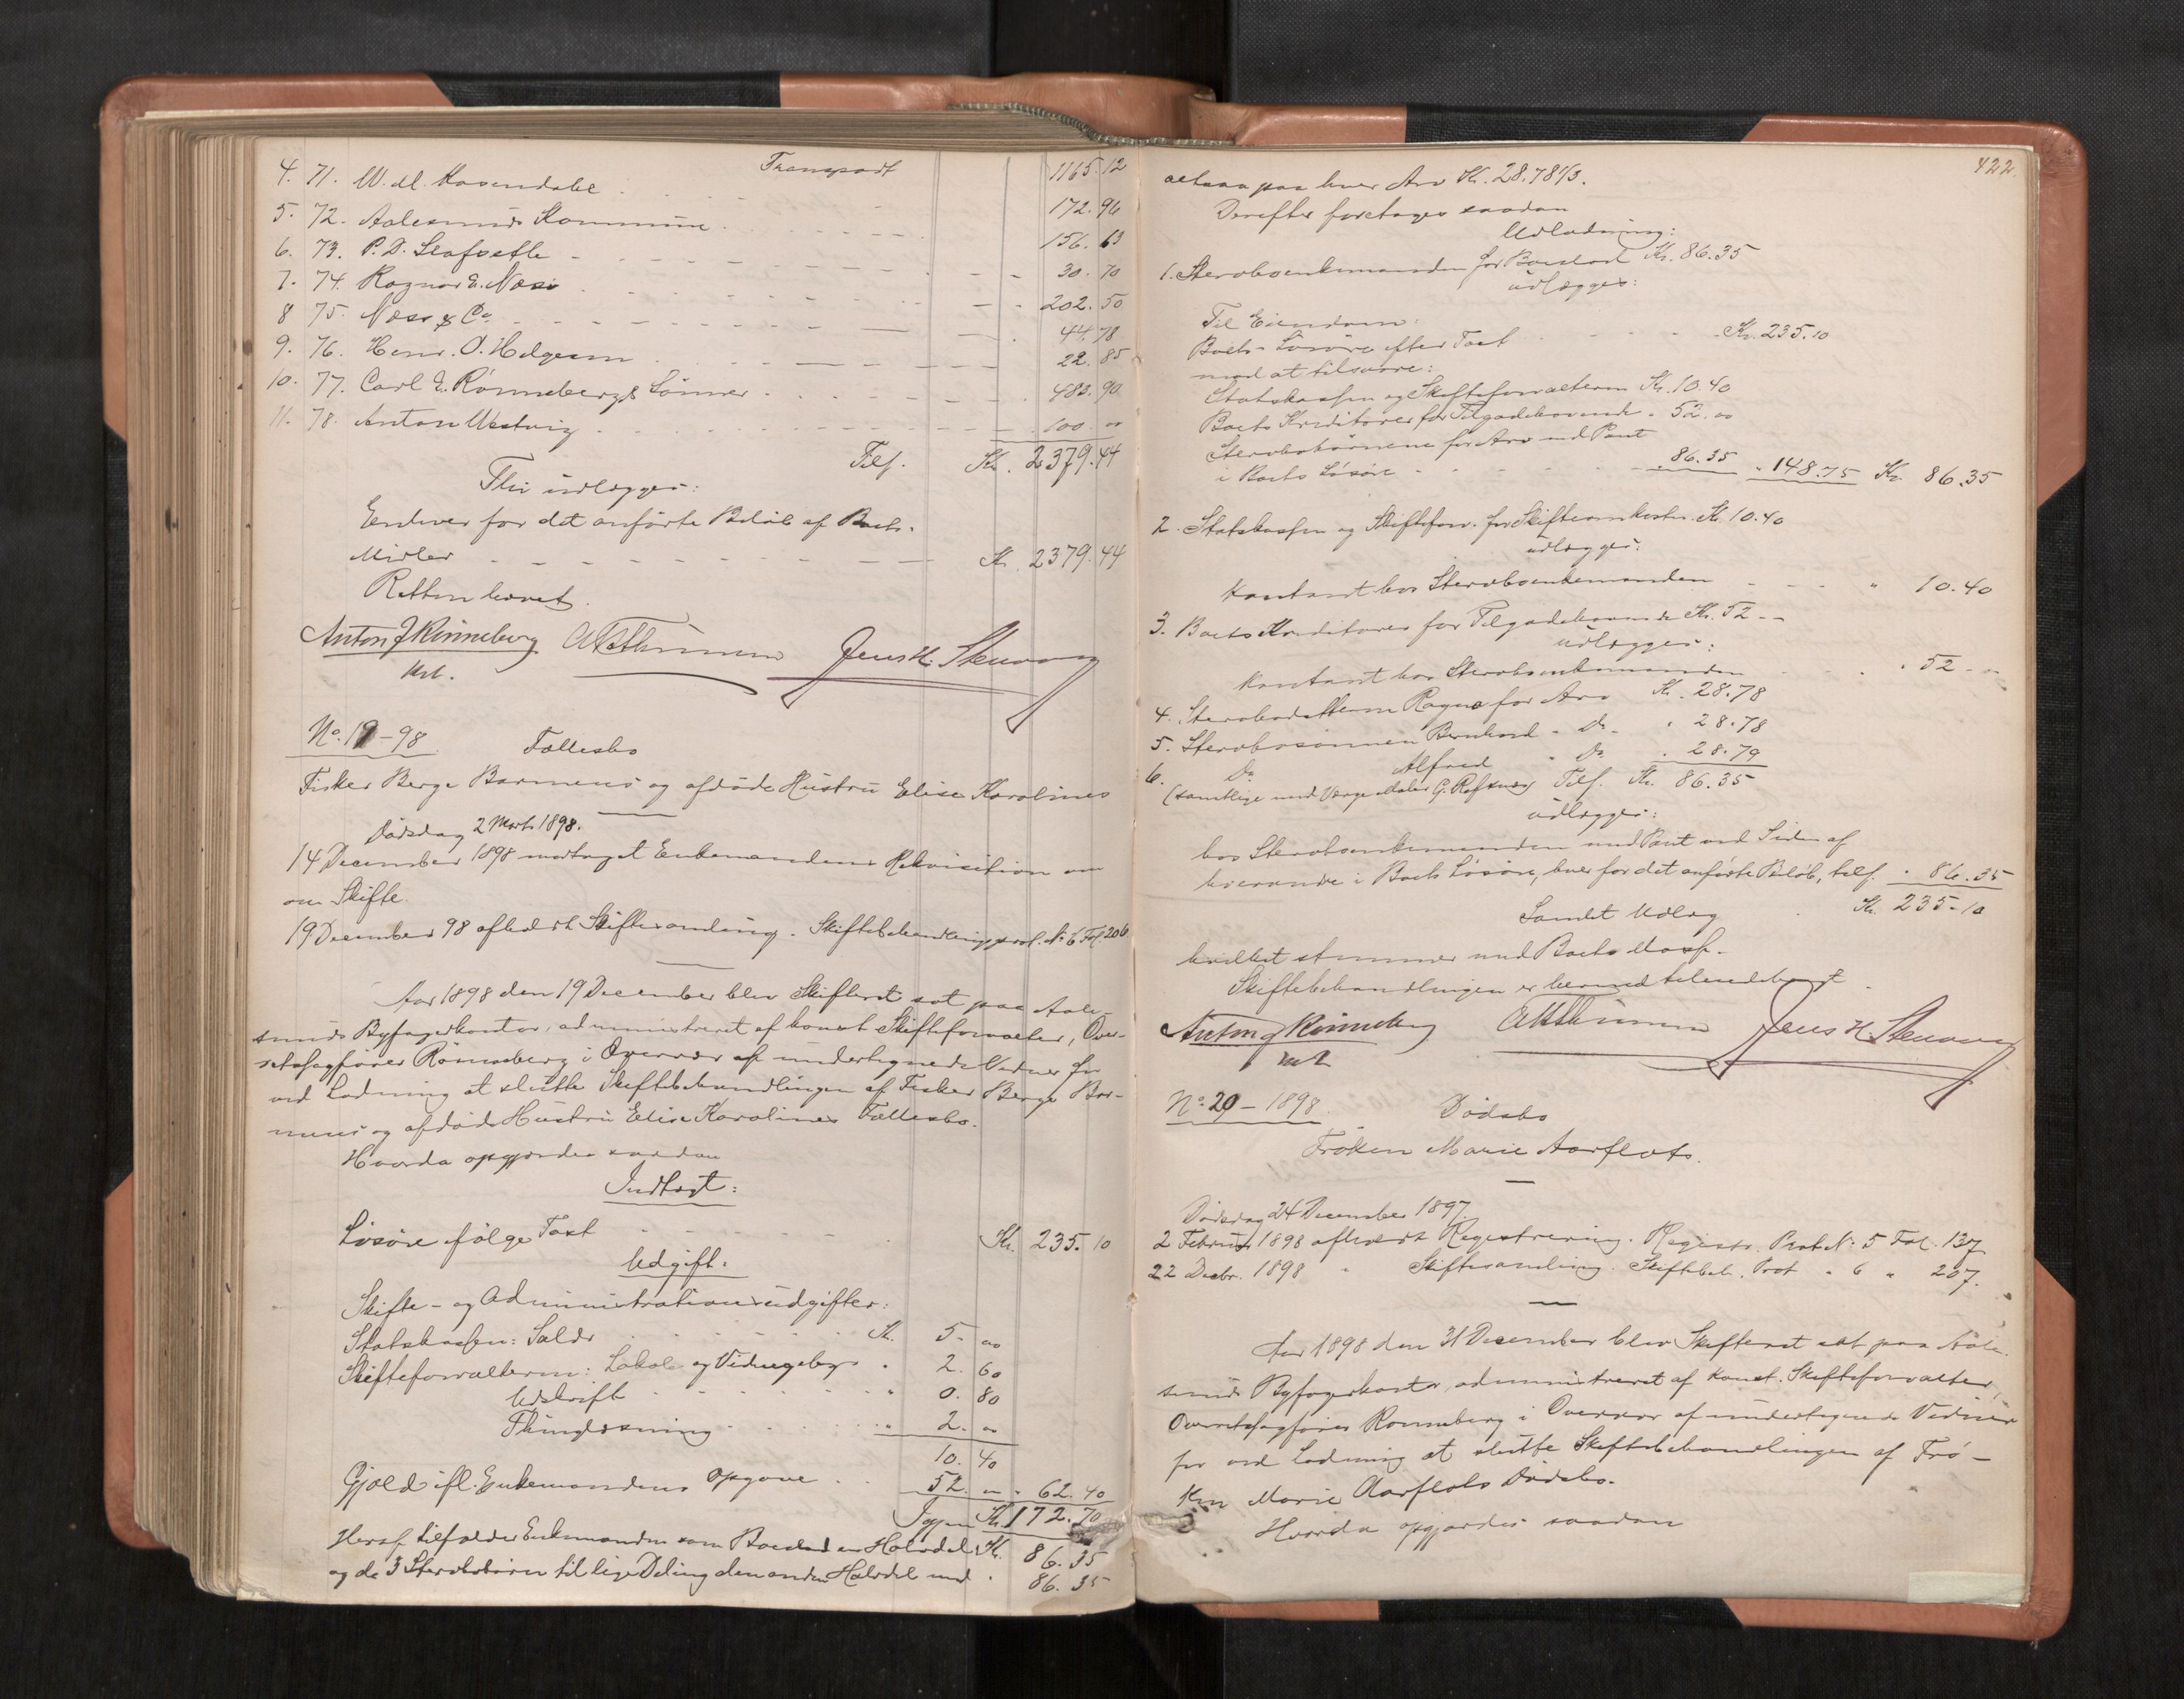 Transport 1165.12
4. 71. W. M. Rosendahl 172.96
5. 72. Aalesunds Kommune 156.63
6. 73. P. D. Slafsette 30.70
7. 74. Ragnar E. Næss 202.50
8 75. Næss & Co 44.78
9. 76. Henr. O. Helgesen 22.85
10. 77. Carl E. Rønnebergs Sønner 483.90
11. 78. Anton Westvig 100.00
Tils. Kr. 2379.44
Thi udlægges:
Enhver for det anførte Beløb af Boets
Midler Kr. 2379.44
Retten hævet.
Anton J Rønneberg Jens H. Stenvaag
kst.
No. 19-98.
Fællesbo
Fisker Berge Barmens og afdøde Hustru Elise Karolines
Dødsdag 2 Marts 1898.
14 December 1898 modtaget Enkemandens Rekvisition om
om Skifte.
19 December 98 afholdt Skiftesamling. Skiftebehandlingsprot. No 6 Fol. 206
Aar 1898 den 19 December blev Skifteret sat paa Aale-
sunds Byfogedkontor, administreret af konst. Skifteforvalter, Over-
retssagfører Rønneberg i Overvær af undertegnede Vidner for
ved Lodning at slutte Skiftebehandlingen af Fisker Berge Bar-
mens og afdøde Hustru Elise Karolines Fællesbo.
Hvorda opgjordes saadan
Indtægt:
Løsøre ifølge Taxt Kr. 235.10
Udgift:
Skifte- og Administrationsudgifter:
Statskassen: Saldo Kr. 5.00
Skifteforvalteren: Lokale og Vidnegebyr " 2.60
Udskrift " 0.80
Thinglæsning " 2.00
10.40
Gjæld ifl. Enkemandens Opgave 52.00 " 62.40
Igjen Kr. 172.70
Heraf tilfalder Enkemanden som Boeslod en Halvdel Kr. 86.35
og de 3 Stervbobørn til lige Deling den anden Halvdel med " 86.35
422.
altsaa paa hver Arv Kr. 28.78 1/3.
Derefter foretages saadan
Udlodning:
1. Stervboenkemanden for Boeslod Kr. 86.35
udlægges:
Til Eiendom:
Boets Løsøre efter Taxt Kr. 235.10
mod at tilsvare:
Statskassen og Skifteforvalteren Kr. 10.40
Boets Kreditorer for Tilgodehavende " 52.00
Stervbobørnene for Arv med Pant
i Boets Løsøre 86.35 " 148.75 Kr. 86.35
2. Statskassen og Skifteforv. for Skifteomkostn. Kr. 10.40
udlægges:
Kontant hos Stervboenkemanden " 10.40
3. Boets Kreditorer for Tilgodehavende Kr. 52 --
udlægges:
Kontant hos Stervboenkemanden " 52 --
4. Stervbodatteren Ragna for Arv Kr. 28.78
5. Stervbosønnen Bernhard " Do " 28.78
6. Do Alfred " Do " 28.79
(samtlige med Værge Maler G. Refsnæs) Tils. Kr. 86.35
udlægges:
hos Stervboenkemanden med Pant ved Siden af
hverandre i Boets Løsøre, hver for det anførte Beløb, tils. " 86.35
Samlet Udlæg Kr. 235.10
hvilket stemmer med Boets Masse.
Skiftebehandlingen er hermed tilendebragt.
Anton J Rønneberg Jens H. Stenvaag
kst
No. 20-1898.
Dødsbo
Frøken Marie Aarflots.
Dødsdag 24 December 1897.
2 Februar 1898 afholdt Registrering. Registr. Prot. No 5 Fol. 137
22 Decbr. 1898 " Skiftesamling. Skiftebeh. Prot " 6 " 207.
Aar 1898 den 31 December blev Skifteret sat paa Aale-
sunds Byfogedkontor, administreret af konst. Skifteforvalter,
Overretssagfører Rønneberg i Overvær af undertegnede Vidner
for ved Lodning at slutte Skiftebehandlingen af Frø-
ken Marie Aarflots Dødsbo.
Hvorda opgjordes saadan